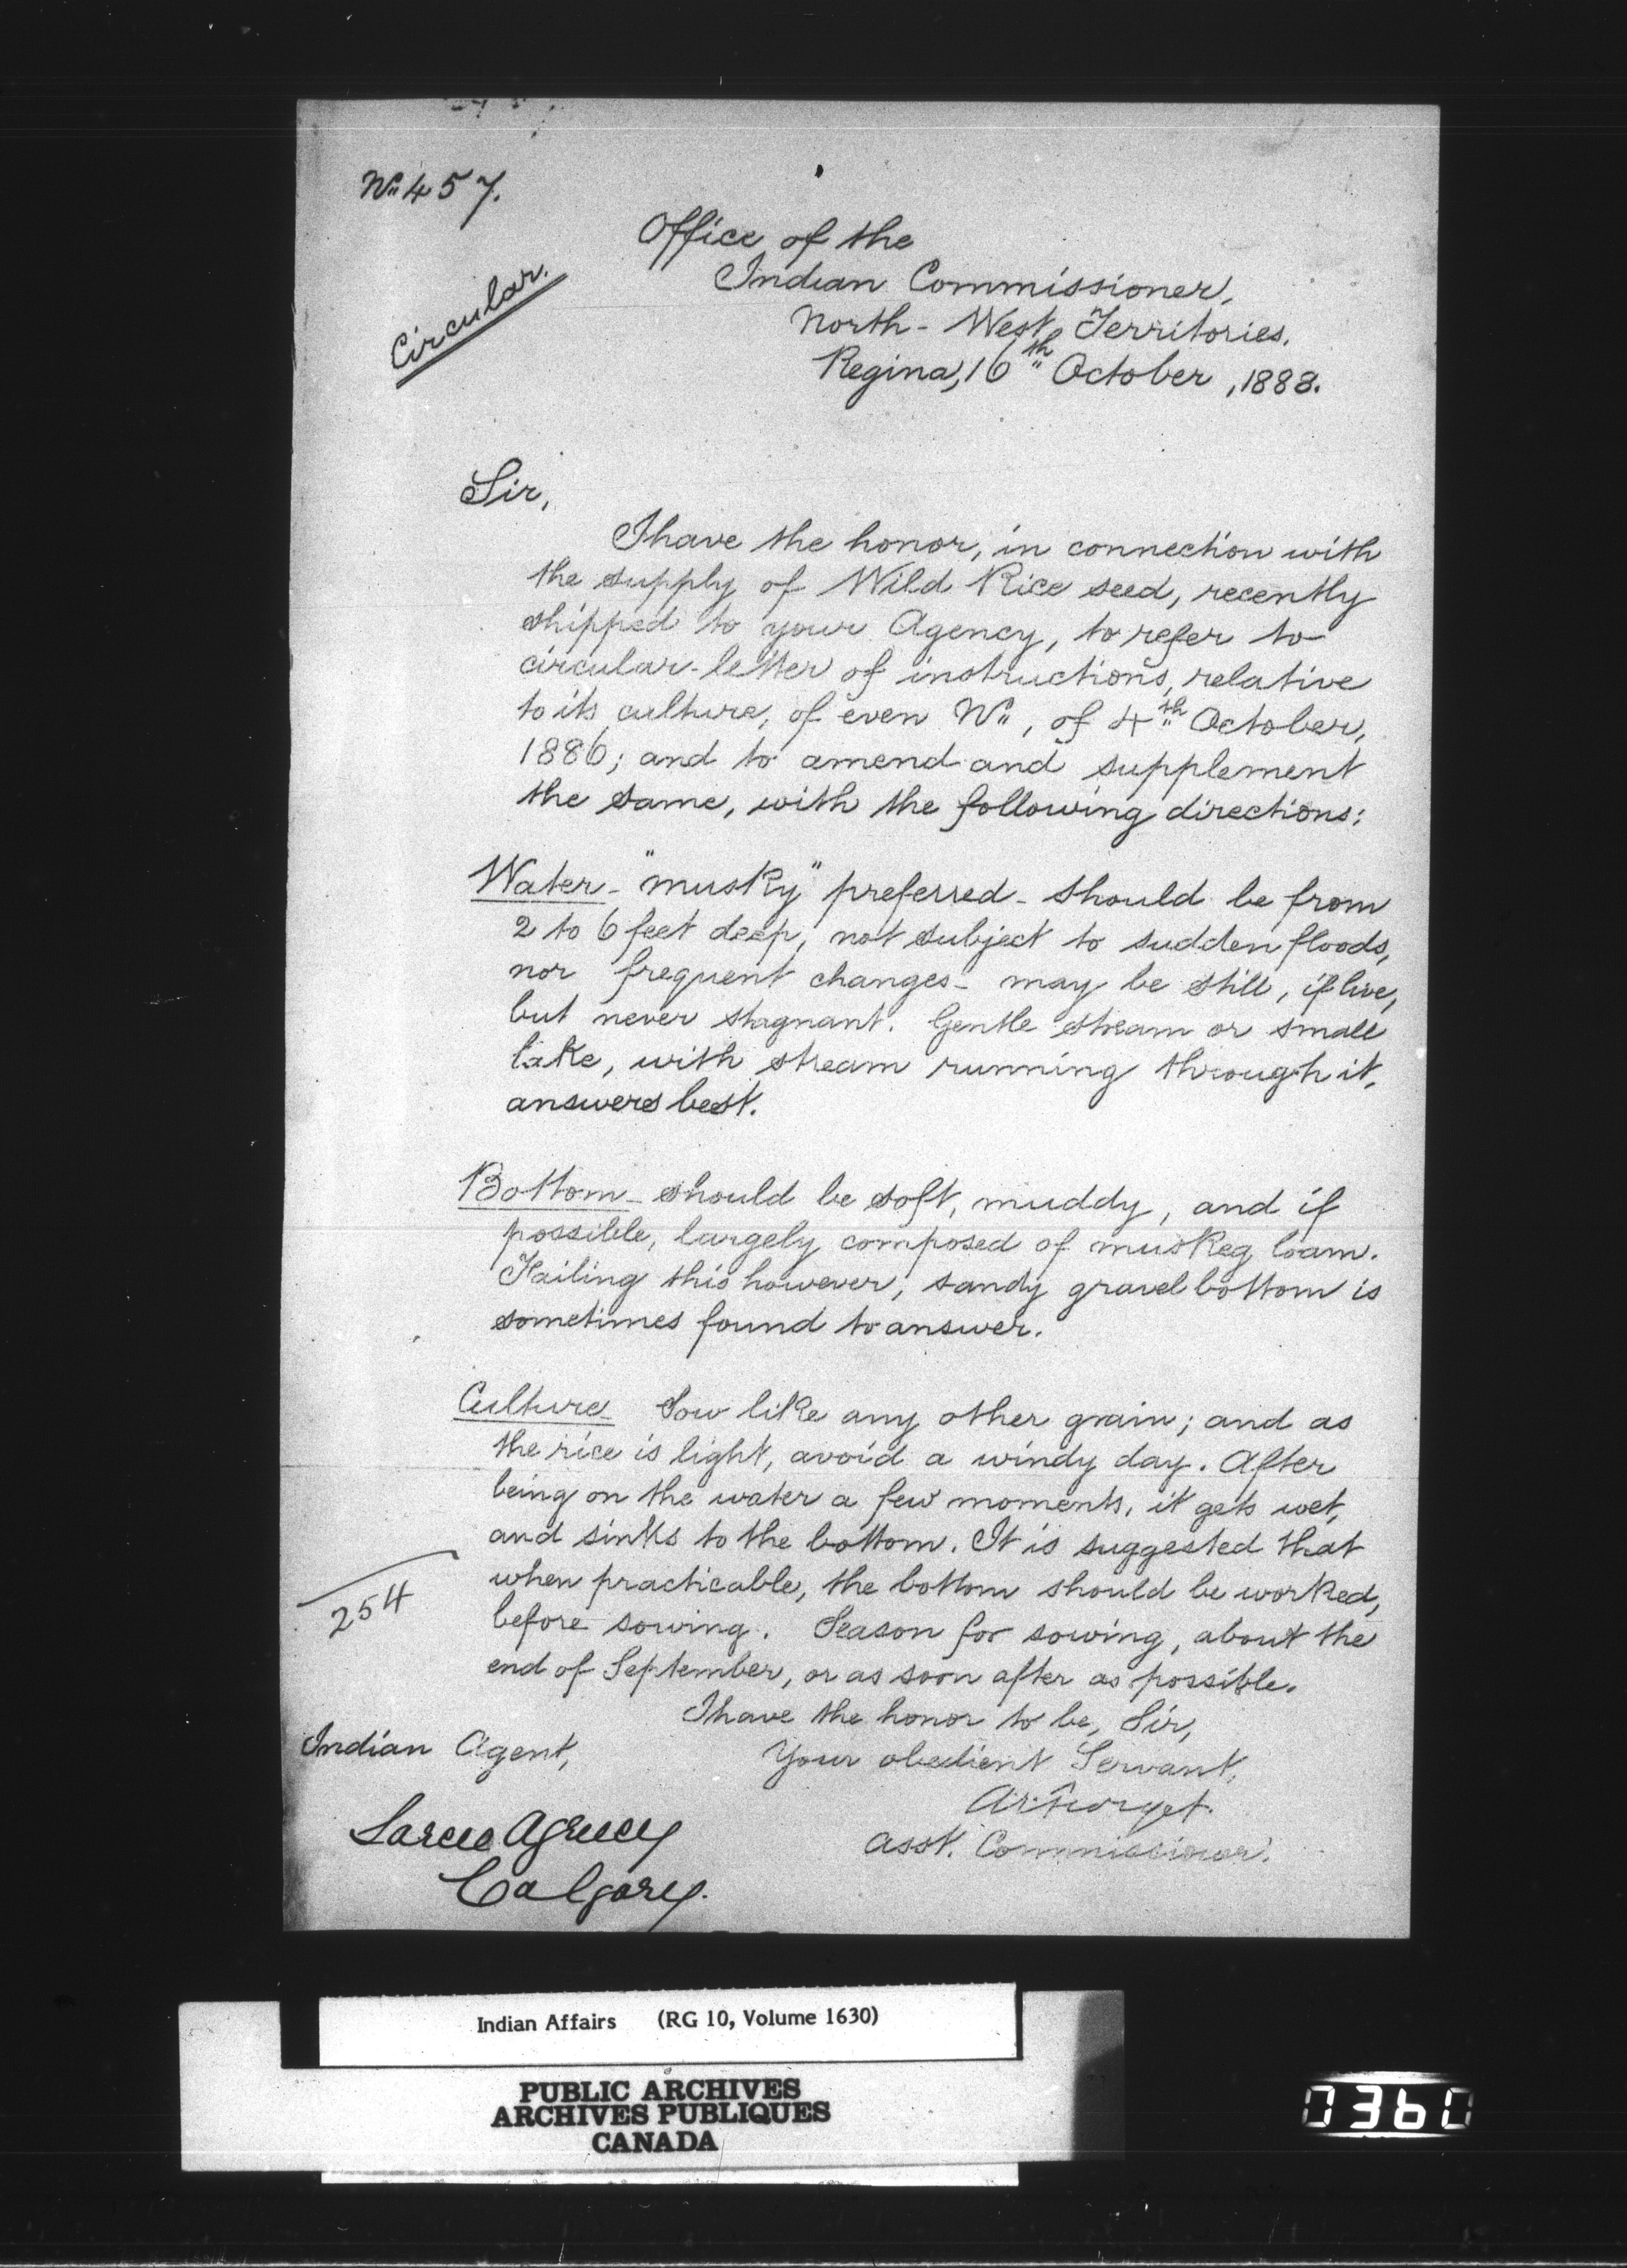 No. 457.
Circular.
Office of the
Indian Commissioner,
North-West Territories.
Regina, 16th October, 1888.
Sir,
I have the honor, in connection with
the supply of Wild Rice seed, recently
shipped to your Agency, to refer to
circular-letter of instructions, relative
to its culture, of even No., of 4th October,
1886; and to amend and supplement
the same, with the following directions:
Water - "musky" preferred - should be from
2 to 6 feet deep, not subject to sudden floods,
nor frequent changes - may be still, if live,
but never stagnant. Gentle stream or small
lake, with stream running through it,
answers best.
Bottom - should be soft, muddy, and if
possible, largely composed of muskeg loam.
Failing this however, sandy gravel bottom is
sometimes found to answer.
Culture - Sow like any other grain; and as
the rice is light, avoid a windy day. After
being on the water a few moments, it gets wet,
and sinks to the bottom. It is suggested that
when practicable, the bottom should be worked,
before sowing. Season for sowing, about the
end of September, or as soon after as possible.
254
I have the honor to be, Sir,
Your obedient Servant,
A. E. Forget.
Asst. Commissioner.
Indian Agent,
Sarcee Agency
Calgary.
Indian Affairs (RG 10, Volume 1630)
PUBLIC ARCHIVES
ARCHIVES PUBLIQUES
CANADA
0360